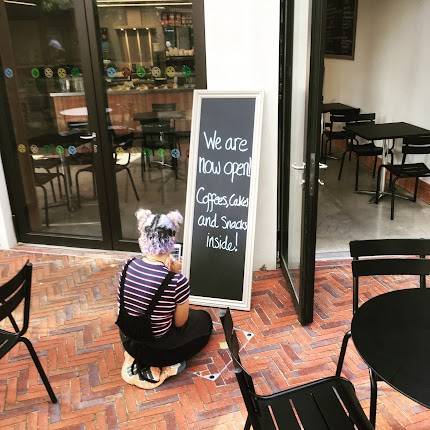 We are
now open!
Coffees, Cakes
and Snacks
inside!